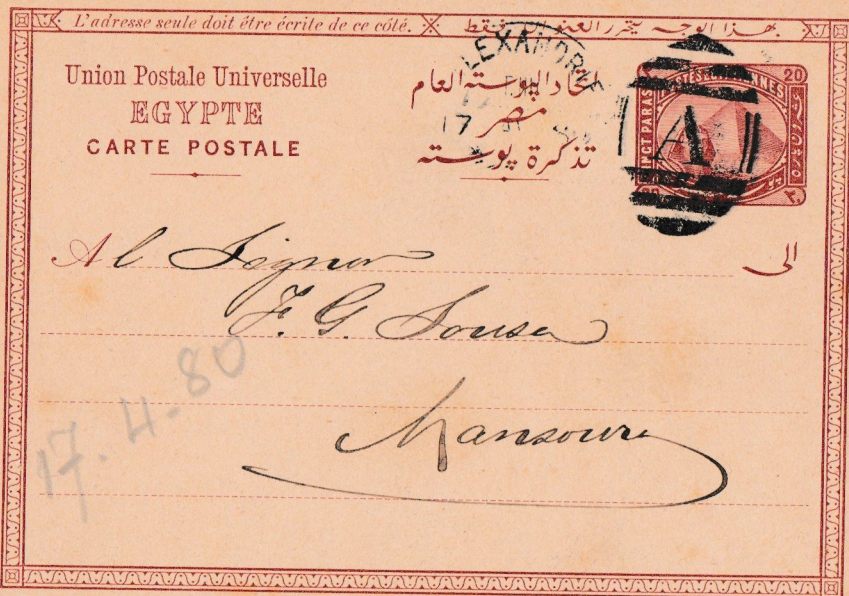 L'adresse seule doit être écrite de ce côté.
بهذا الوجه يتحرر العنوان فقط
Union Postale Universelle
EGYPTE
CARTE POSTALE
اتحاد البوسته العام
مصر
تذكرة بوسته
LEXANDRIE
17
A
20
الى
Al Signor
F. G. Sousa
Mansoura
17.4.80